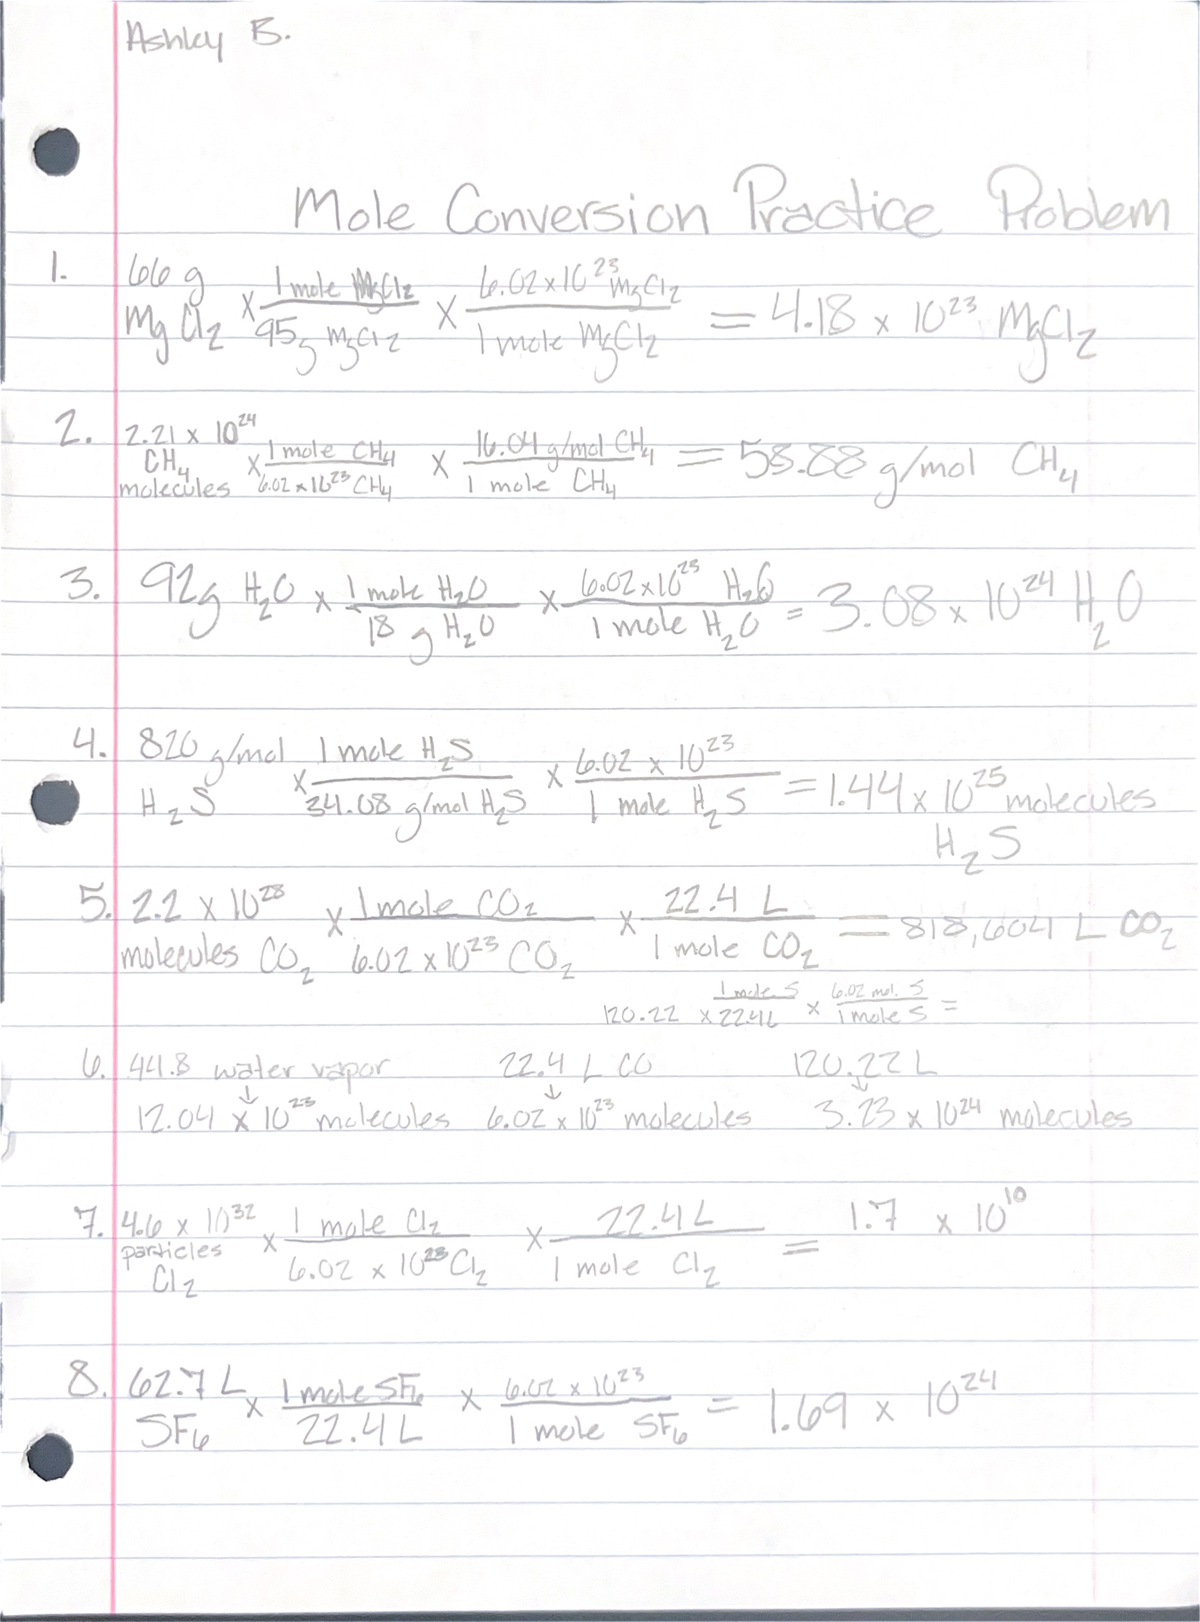 Ashley B.
Mole Conversion Practice Problem
1. 66 g MgCl₂ × 1 mole MgCl₂ / 95g MgCl₂ × 6.02×10²³ MgCl₂ / 1 mole MgCl₂ = 4.18 × 10²³ MgCl₂
2. 2.21 × 10²⁴ CH₄ molecules × 1 mole CH₄ / 6.02×10²³ CH₄ × 16.04 g/mol CH₄ / 1 mole CH₄ = 58.88 g/mol CH₄
3. 92g H₂O × 1 mole H₂O / 18 g H₂O × 6.02×10²³ H₂O / 1 mole H₂O = 3.08 × 10²⁴ H₂O
4. 820 g/mol H₂S × 1 mole H₂S / 34.08 g/mol H₂S × 6.02 × 10²³ / 1 mole H₂S = 1.44 × 10²⁵ molecules H₂S
5. 2.2 × 10²⁸ molecules CO₂ × 1 mole CO₂ / 6.02 × 10²³ CO₂ × 22.4 L / 1 mole CO₂ = 818,604 L CO₂
120.22 × 1 mole S / 22.4L × 6.02 mol. S / 1 mole S =
6. 44.8 water vapor 22.4 L CO 120.22 L
↓ ↓ ↓
12.04 × 10²³ molecules 6.02 × 10²³ molecules 3.23 × 10²⁴ molecules
7. 4.6 × 10³² particles Cl₂ × 1 mole Cl₂ / 6.02 × 10²³ Cl₂ × 22.4L / 1 mole Cl₂ = 1.7 × 10¹⁰
8. 62.7 L SF₆ × 1 mole SF₆ / 22.4 L × 6.02 × 10²³ / 1 mole SF₆ = 1.69 × 10²⁴